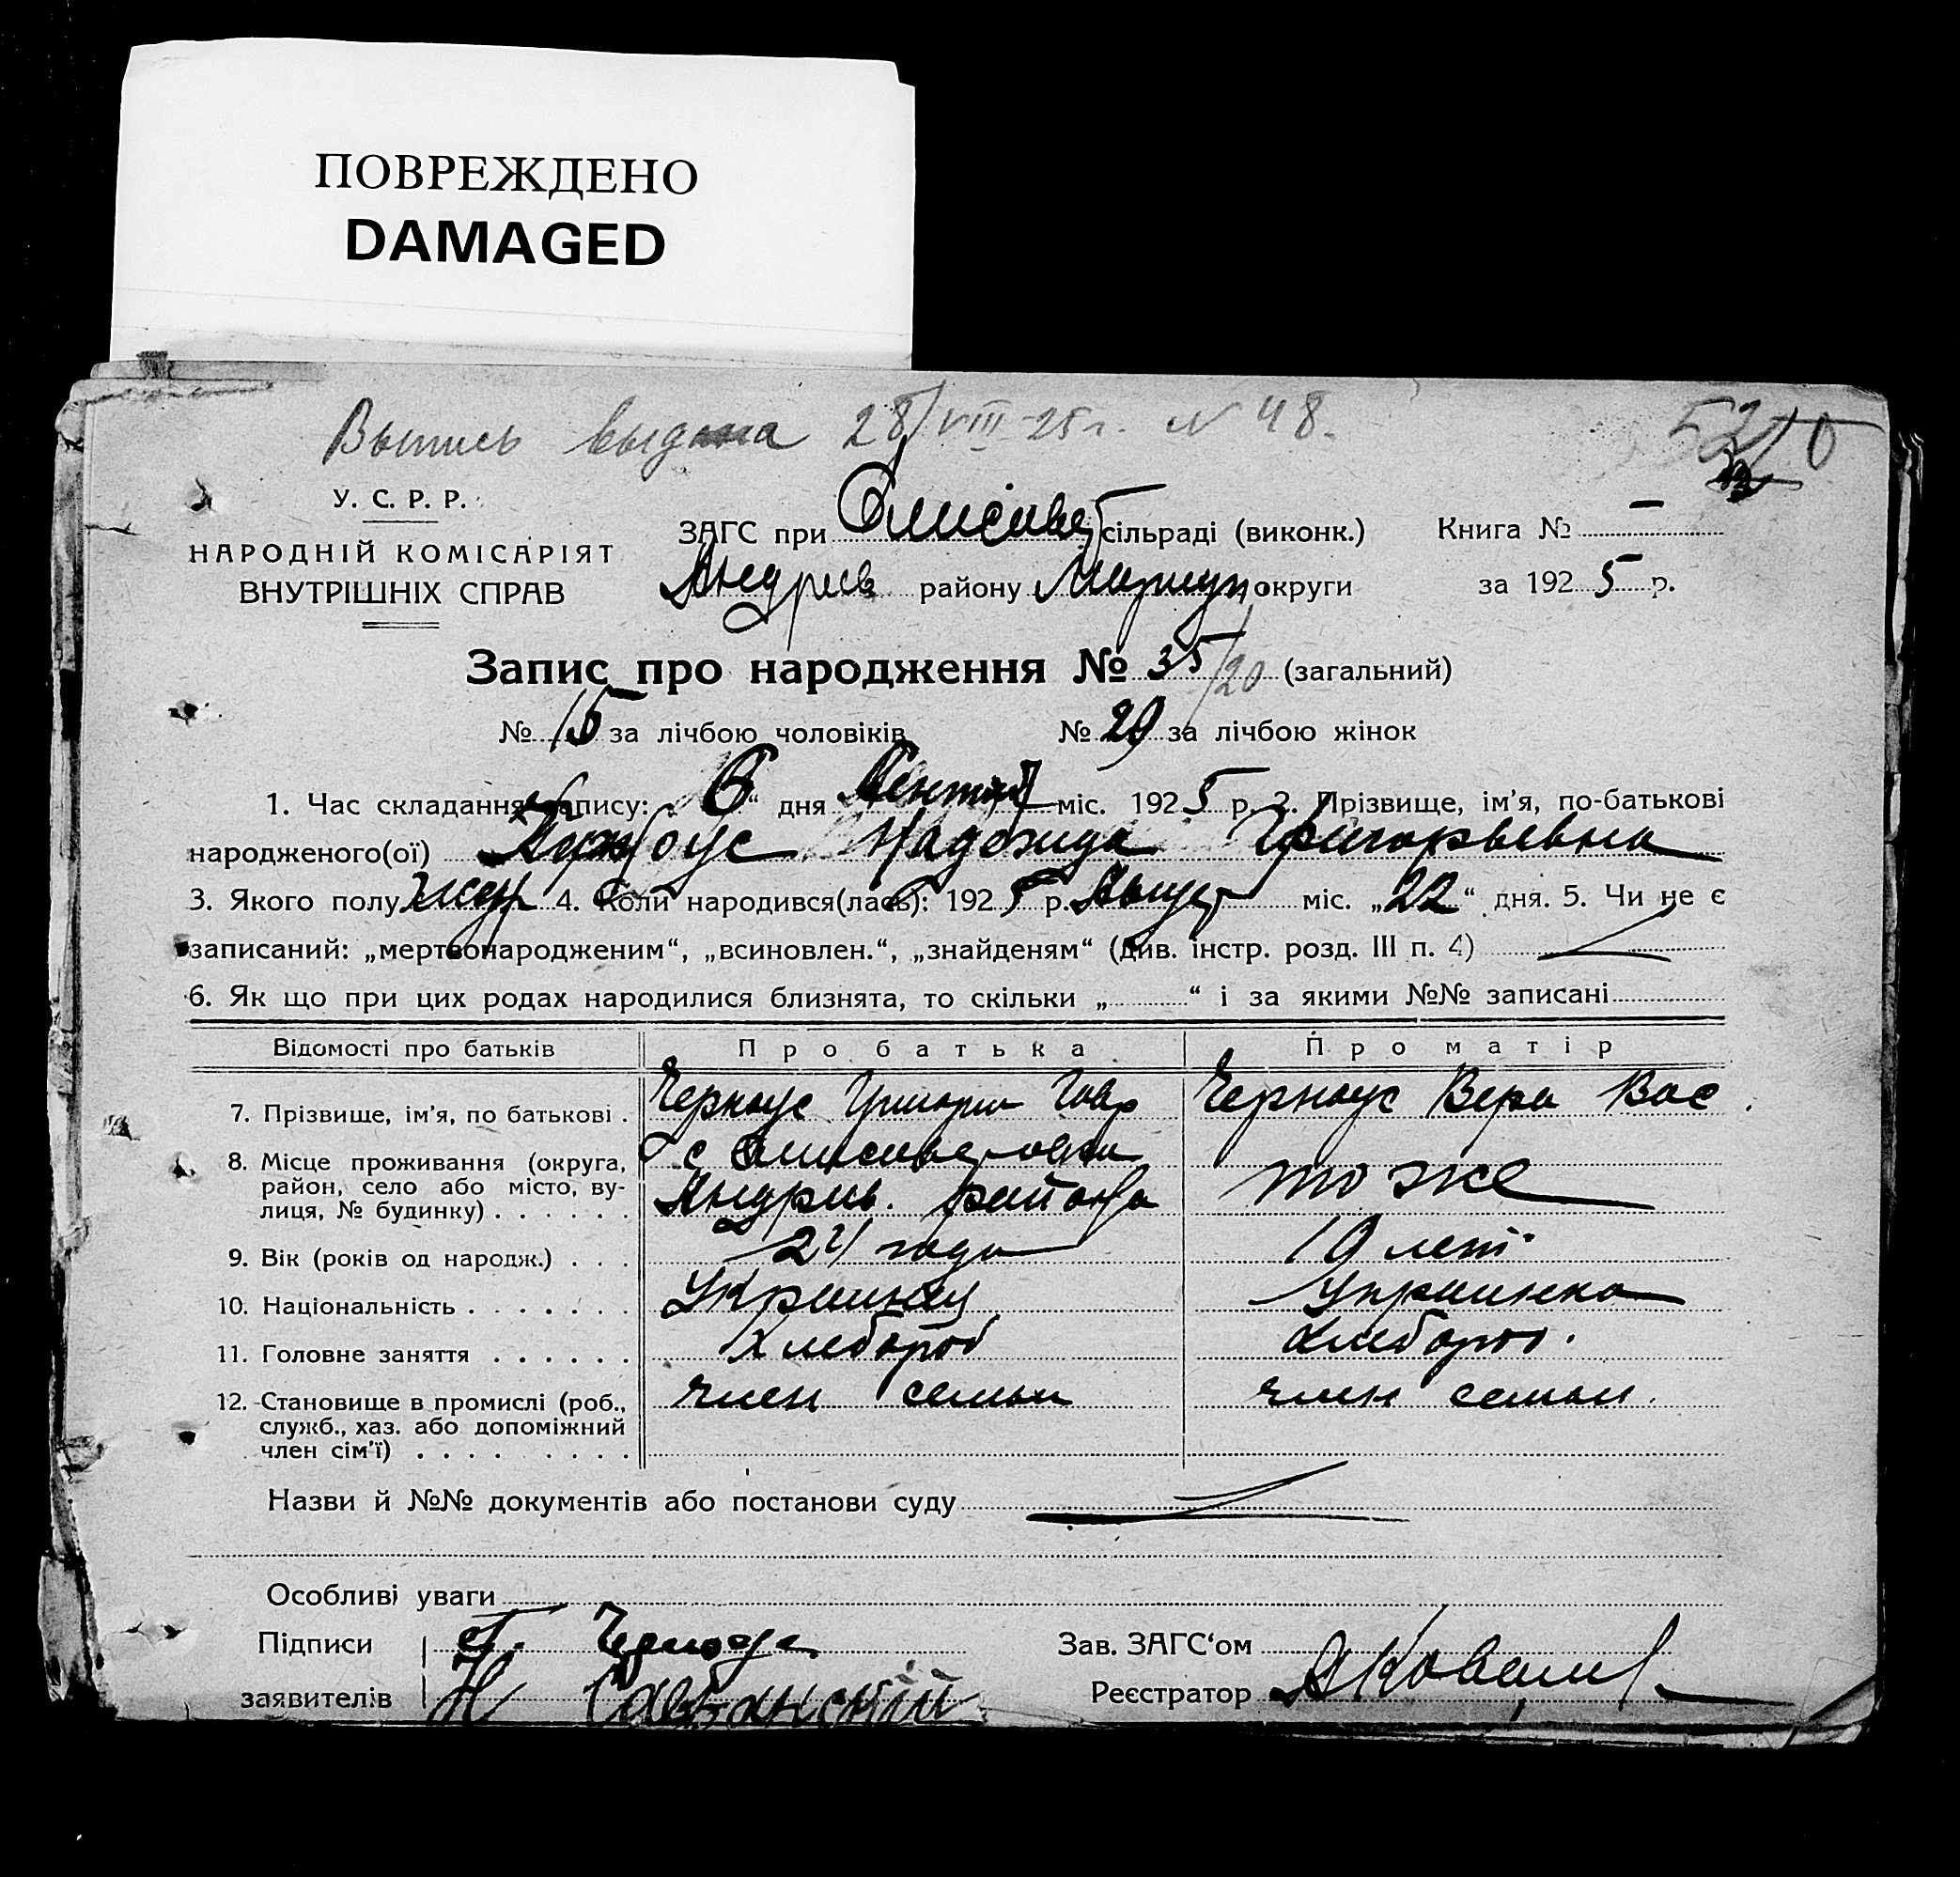 ПОВРЕЖДЕНО
DAMAGED
Выпись выдана 28/VIII-25 г. N 48.
У. С. Р. Р.
ЗАГС при Елисавет сільраді (виконк.) Книга № –
НАРОДНІЙ КОМІСАРІЯТ
ВНУТРІШНІХ СПРАВ
Андреев району Мариуп округи за 1925 р.
Запис про народження № 35/20 (загальний)
№ 15 за лічбою чоловіків № 20 за лічбою жінок
1. Час складання запису: „6“ дня міс. 1925 р. 2. Прізвище, ім’я, по-батькові
народженого(ої) Черноус Надежида Григорьевна
3. Якого полу жен 4. Коли народився(лась): 1925 р. Август міс. „22“ дня. 5. Чи не є
записаний: „мертвонародженим“, „всиновлен.“, „знайденям“ (див. інстр. розд. III п. 4)
6. Як що при цих родах народилися близнята, то скільки „ “ і за якими №№ записані
Відомості про батьків Про батька Про матір
7. Прізвище, ім’я, по батькові . Черноус Григори Гавр Черноус Вера Вас
8. Місце проживання (округа, район, село або місто, вулиця, № будинку) . . . . . . с Елисаветовки
Андреев. района то же
9. Вік (років од народж.) . . . 24 года 19 лет
10. Національність . . . . . . . Украинец Украинка
11. Головне заняття . . . . . . Хлебороб Хлебороб.
12. Становище в промислі (роб., член семьи член семьи.
служб., хаз. або допоміжний
член сім’ї) . . . . . . . .
Назви й №№ документів або постанови суду
Особливі уваги
Підписи Г. Черноус Зав. ЗАГС‘ом
заявителів Н Реєстратор АКовалев